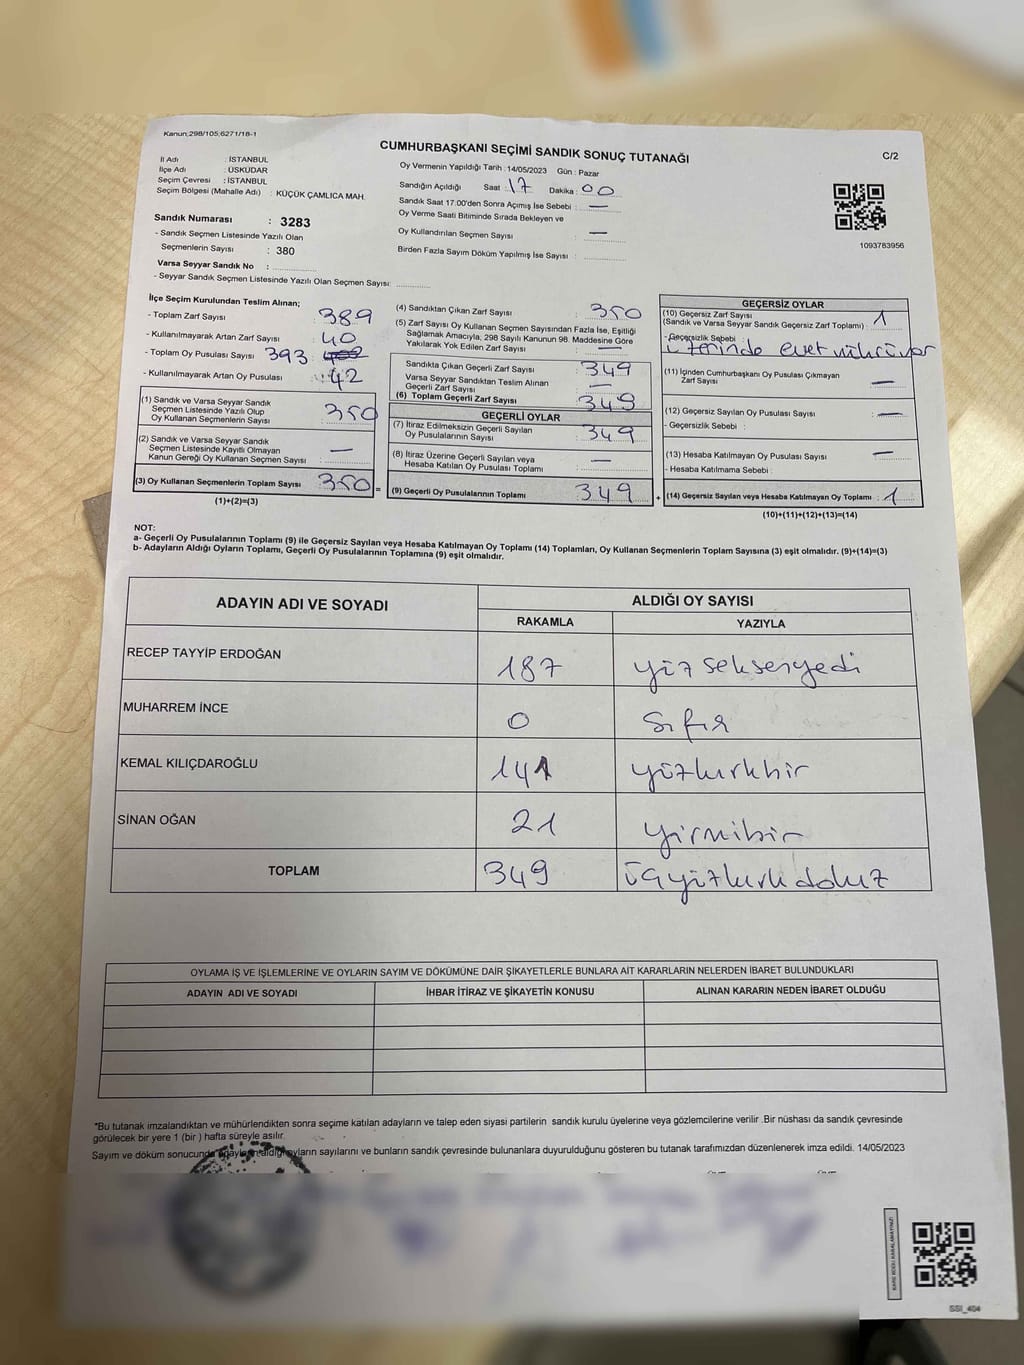 Kanun;298/105;6271/18-1
CUMHURBAŞKANI SEÇİMİ SANDIK SONUÇ TUTANAĞI
C/2
İl Adı : İSTANBUL
İlçe Adı : ÜSKÜDAR
Seçim Çevresi : İSTANBUL
Seçim Bölgesi (Mahalle Adı) : KÜÇÜK ÇAMLICA MAH.
Sandık Numarası : 3283
- Sandık Seçmen Listesinde Yazılı Olan
Seçmenlerin Sayısı : 380
Varsa Seyyar Sandık No :
- Seyyar Sandık Seçmen Listesinde Yazılı Olan Seçmen Sayısı:
Oy Vermenin Yapıldığı Tarih : 14/05/2023 Gün : Pazar
Sandığın Açıldığı Saat : 17 Dakika : 00
Sandık Saat 17:00'den Sonra Açımış İse Sebebi : —
Oy Verme Saati Bitiminde Sırada Bekleyen ve
Oy Kullandırılan Seçmen Sayısı : —
Birden Fazla Sayım Döküm Yapılmış İse Sayısı :
1093783956
İlçe Seçim Kurulundan Teslim Alınan;
- Toplam Zarf Sayısı : 389
- Kullanılmayarak Artan Zarf Sayısı : 40
- Toplam Oy Pusulası Sayısı 393
- Kullanılmayarak Artan Oy Pusulası : 42
(1) Sandık ve Varsa Seyyar Sandık
Seçmen Listesinde Yazılı Olup
Oy Kullanan Seçmenlerin Sayısı : 350
(2) Sandık ve Varsa Seyyar Sandık
Seçmen Listesinde Kayıtlı Olmayan
Kanun Gereği Oy Kullanan Seçmen Sayısı : —
(3) Oy Kullanan Seçmenlerin Toplam Sayısı : 350 =
(1)+(2)=(3)
(4) Sandıktan Çıkan Zarf Sayısı : 350
(5) Zarf Sayısı Oy Kullanan Seçmen Sayısından Fazla İse, Eşitliği
Sağlamak Amacıyla, 298 Sayılı Kanunun 98. Maddesine Göre
Yakılarak Yok Edilen Zarf Sayısı : —
Sandıkta Çıkan Geçerli Zarf Sayısı : 349
Varsa Seyyar Sandıktan Teslim Alınan
Geçerli Zarf Sayısı : —
(6) Toplam Geçerli Zarf Sayısı : 349
GEÇERLİ OYLAR
(7) İtiraz Edilmeksizin Geçerli Sayılan
Oy Pusulalarının Sayısı : 349
(8) İtiraz Üzerine Geçerli Sayılan veya
Hesaba Katılan Oy Pusulası Toplamı : —
(9) Geçerli Oy Pusulalarının Toplamı : 349 +
GEÇERSİZ OYLAR
(10) Geçersiz Zarf Sayısı
(Sandık ve Varsa Seyyar Sandık Geçersiz Zarf Toplamı) : 1
- Geçersizlik Sebebi :
üzerinde evet mührü var
(11) İçinden Cumhurbaşkanı Oy Pusulası Çıkmayan
Zarf Sayısı : —
(12) Geçersiz Sayılan Oy Pusulası Sayısı : —
- Geçersizlik Sebebi :
(13) Hesaba Katılmayan Oy Pusulası Sayısı : —
- Hesaba Katılmama Sebebi :
(14) Geçersiz Sayılan veya Hesaba Katılmayan Oy Toplamı : 1
(10)+(11)+(12)+(13)=(14)
NOT:
a- Geçerli Oy Pusulalarının Toplamı (9) ile Geçersiz Sayılan veya Hesaba Katılmayan Oy Toplamı (14) Toplamları, Oy Kullanan Seçmenlerin Toplam Sayısına (3) eşit olmalıdır. (9)+(14)=(3)
b- Adayların Aldığı Oyların Toplamı, Geçerli Oy Pusulalarının Toplamına (9) eşit olmalıdır.
ADAYIN ADI VE SOYADI
ALDIĞI OY SAYISI
RAKAMLA YAZIYLA
RECEP TAYYİP ERDOĞAN 187 yüz seksenyedi
MUHARREM İNCE 0 sıfır
KEMAL KILIÇDAROĞLU 141 yüzkırkbir
SİNAN OĞAN 21 yirmibir
TOPLAM 349 üçyüzkırkdokuz
OYLAMA İŞ VE İŞLEMLERİNE VE OYLARIN SAYIM VE DÖKÜMÜNE DAİR ŞİKAYETLERLE BUNLARA AİT KARARLARIN NELERDEN İBARET BULUNDUKLARI
ADAYIN ADI VE SOYADI İHBAR İTİRAZ VE ŞİKAYETİN KONUSU ALINAN KARARIN NEDEN İBARET OLDUĞU
*Bu tutanak imzalandıktan ve mühürlendikten sonra seçime katılan adayların ve talep eden siyasi partilerin sandık kurulu üyelerine veya gözlemcilerine verilir .Bir nüshası da sandık çevresinde
görülecek bir yere 1 (bir ) hafta süreyle asılır.
Sayım ve döküm sonucunda adayların aldığı oyların sayılarını ve bunların sandık çevresinde bulunanlara duyurulduğunu gösteren bu tutanak tarafımızdan düzenlenerek imza edildi. 14/05/2023
KARE KODU KARALAMAYINIZ!
SSI_404